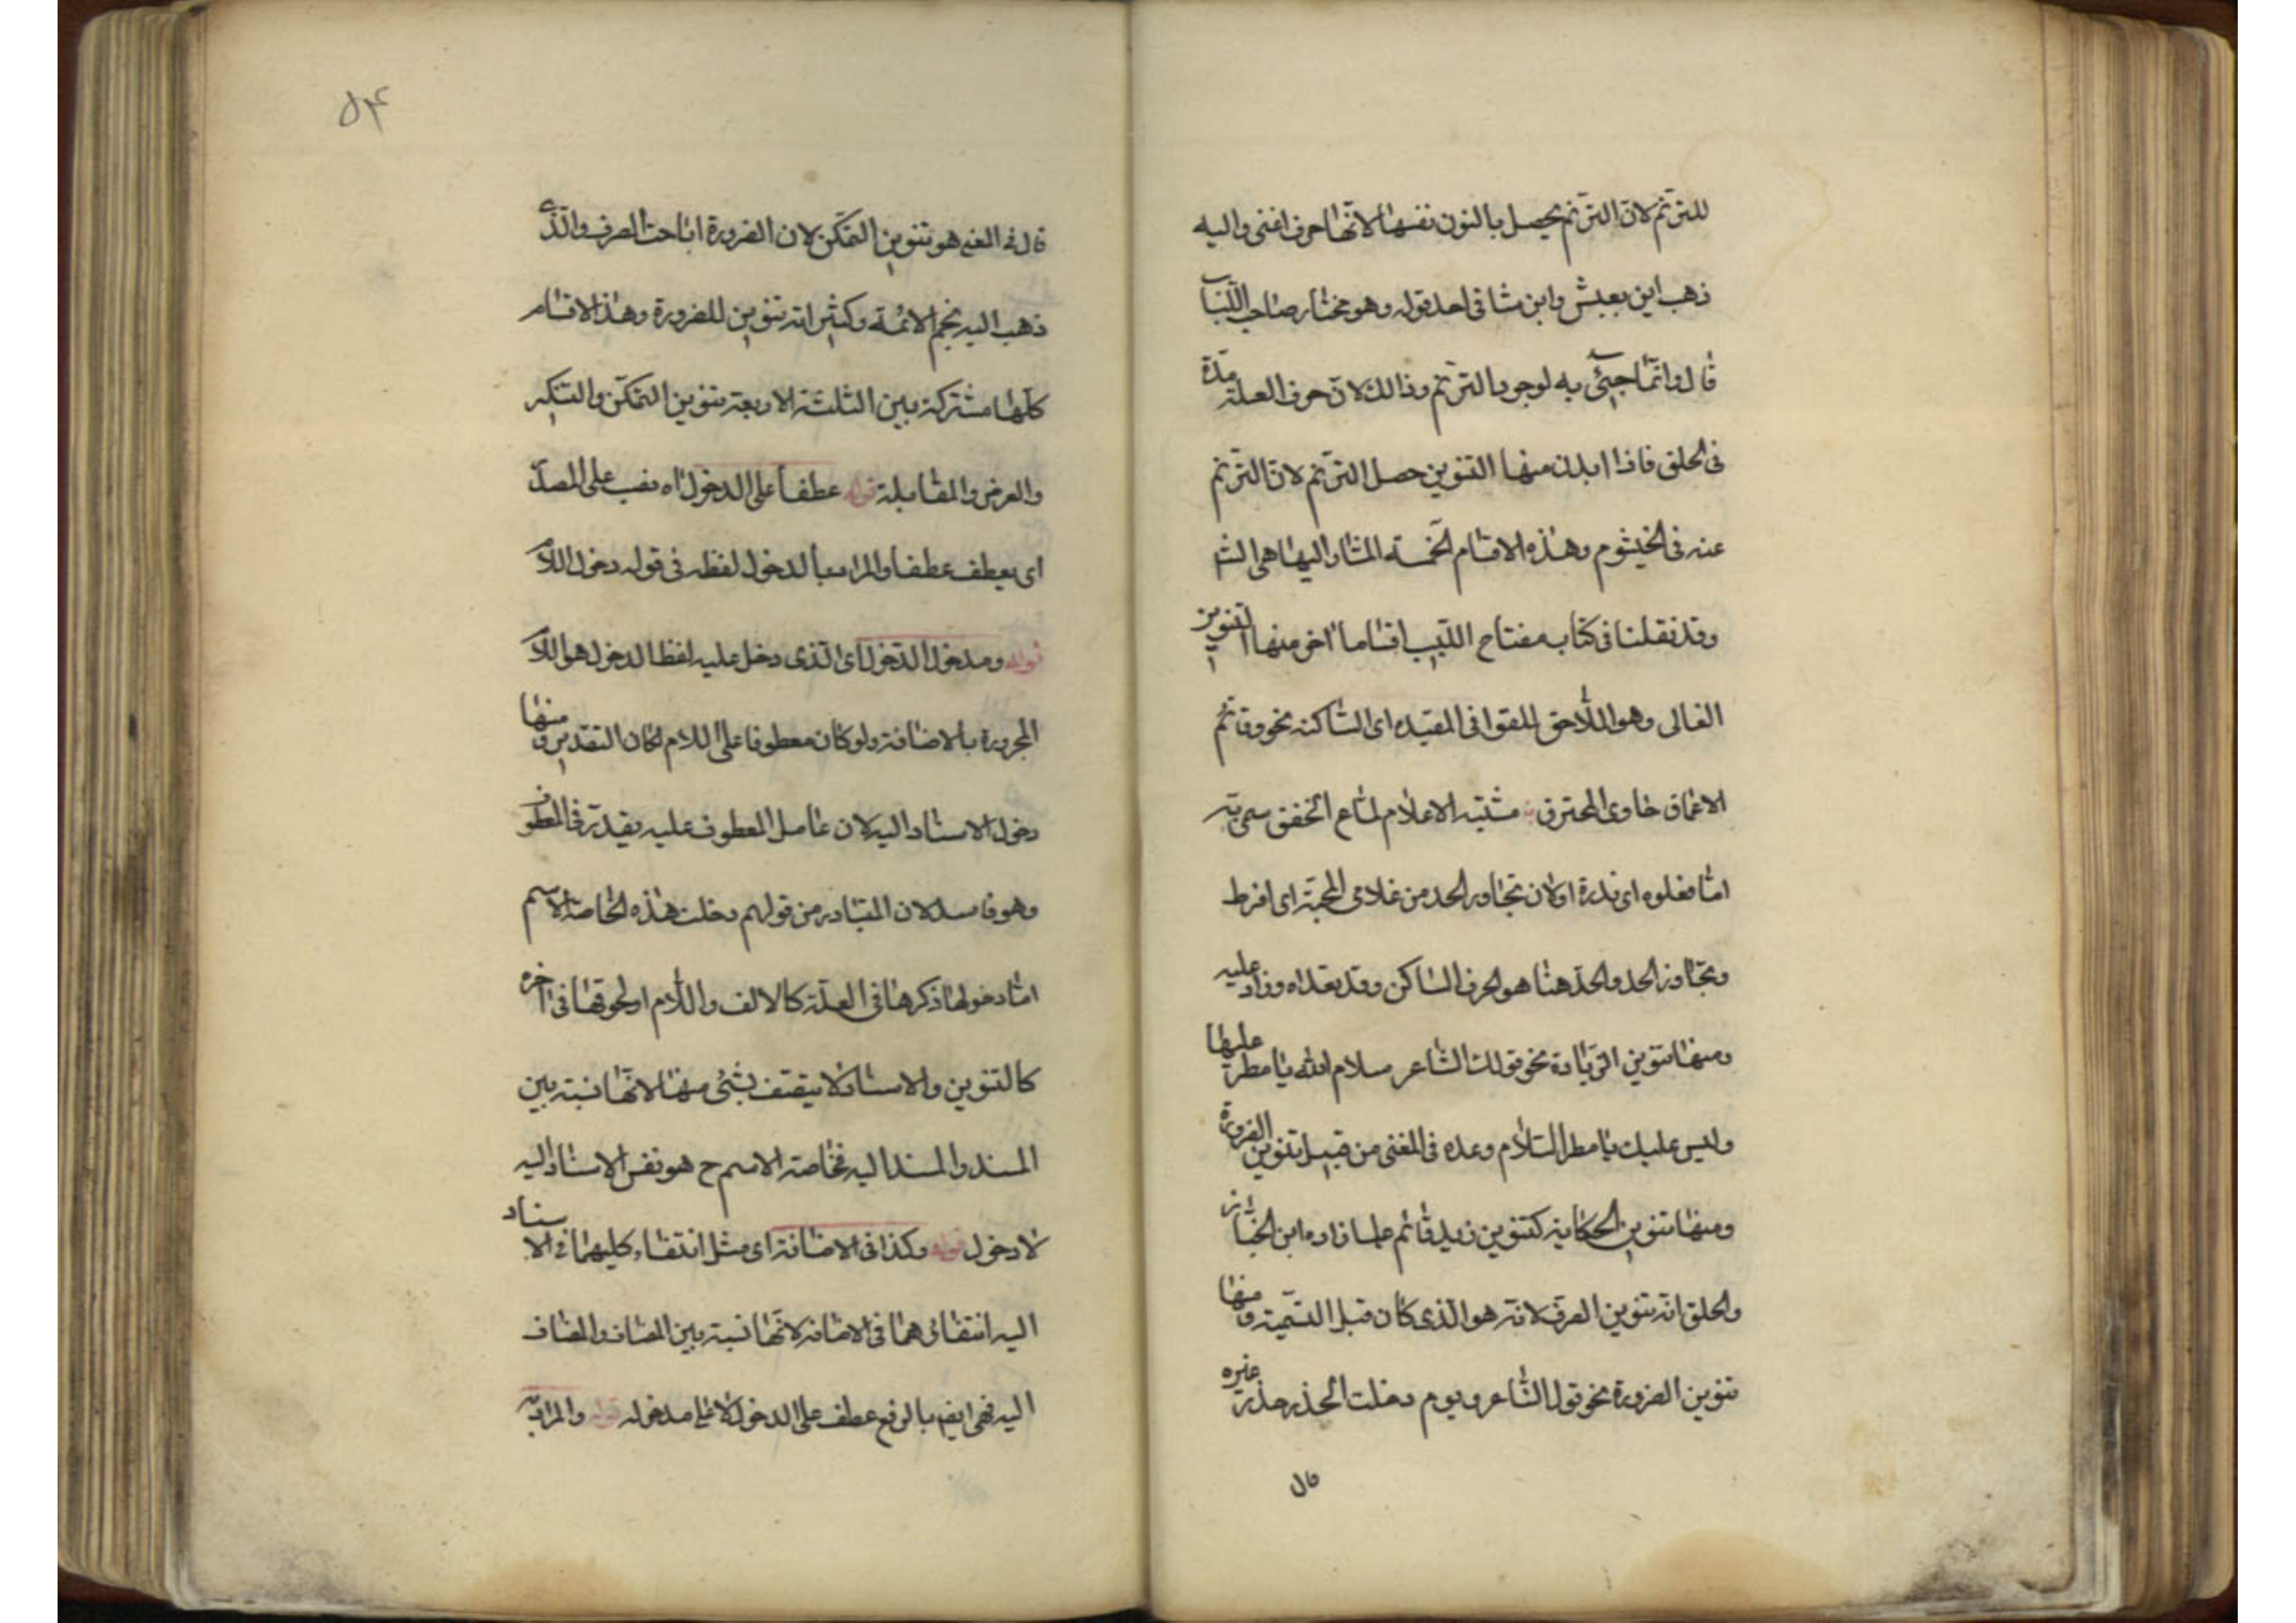 للترنّم لانّ الترنّم يحصل بالنون نفسها لانّها حرف اغنى واليه
ذهب ابن يعيش وابن هشا فى احد قوله وهو مختار صاحب اللّباب
قال وانّما جيئ به لوجود الترنّم وذالك لانّ حرف العلة مدّة
فى الحلق فاذا ابدل منها التنوين حصل الترنّم لانّ الترنم
عنه فى الخيشوم وهذه الاقسام الخمسه المشار اليها هى الشا
وقد نقلنا فى كتابه مفتاح اللّبيب اقساما اخر منها التنوين
الغالى وهو اللّاحق للقوافى المقيّده اى الساكنه نحو وقاتم
الاعماق خاوى المخترق مشتبه الاعلام لمّاع الخفق سمى به
امّا مغلوه اى ندرة اولان تجاوز الحد من غلا فى المحبّة اى افرط
وتجاوز الحد والحدّ هنا هو الحرف الساكن وقد تعداه وزاد عليه
ومنها تنوين الزّيادة نحو قولك الشّاعر سلام الله يا مطر عليها
وليس عليك يا مطر السّلام وعده فى المغنى من قبيل تنوين الضرورة
ومنها تنوين الحكاية كتنوين زيد قائم علما زاده ابن الخبّاز
والحلق انّه تنوين الصرف لانّه هو الّذى كان قبل التسّمية ومنها
تنوين الضرورة نحو قول الشّاعر ويوم دخلت الخدر خدر عنيزه
قال
٥٤
قال فى المغنى هو تنوين التمكّن لان الضرورة اباحت الصرف والّذى
ذهب اليه نجم الائمّة وكثير انّه تنوين للضرورة وهذ الاقسام
كلّها مشتركة بين الثلثة الاربعة تنوين التمكّن والتنكير
والعوض والمقابلة قوله عطفاً على الدخول اه نصب على المصدر
اى يعطف عطفا والمراد بالدخول لفظه فى قوله دخول اللّام
قوله ومدخول الدّخول اى الّذى دخل عليه لفظ الدخول هو اللّام
المجرورة بالاضافة ولو كان معطوفا على اللام لكان التقدير ومنها
دخول الاسناد اليه لان عامل المعطوف عليه يقدّر فى المعطوف
وهو فاسد لان المتبادر من قولهم دخلت هذه الخاصة الاسم
امّا دخولها ذكرها فى العلّة كالالف واللّام او لحوقها فى اخره
كالتنوين والاسناد لا يتصف بشئ منها لانّها نسبة بين
المسند والمسند اليه فخاصة الاسم ح هو نفس الاسناد اليه
لا دخول قوله وكذا فى الاضافة اى مثل انتفاء كليهما فى الاسناد
اليه انتفائهما فى الاضافة لانّها نسبة بين المضاف والمضاف
اليه فهى ايض بالرفع عطف على الدخول لا على مدخوله قوله والمراد به